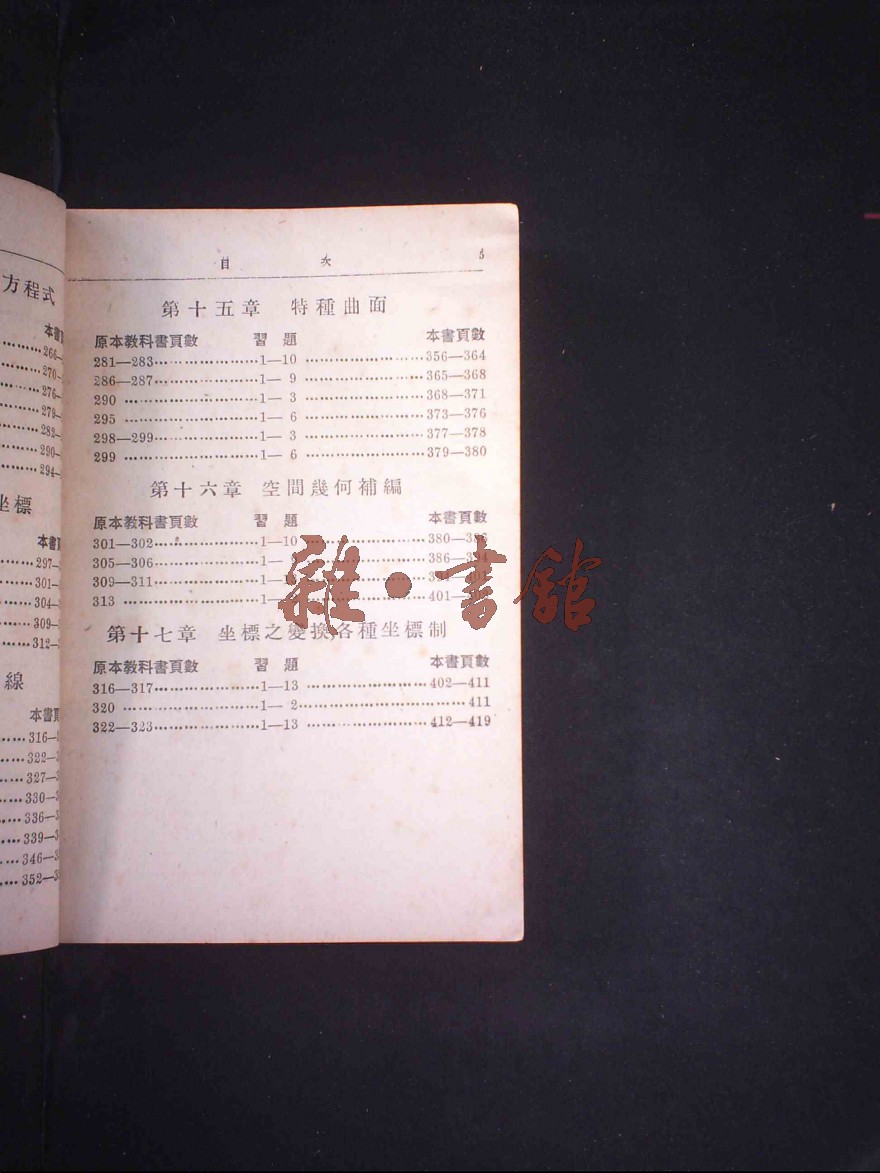 方程式
本書
266—
270—
276—
279—
282—
290—
294—
坐標
本書
297—
301—
304—
309—
312—
線
本書頁
316—
322—
327—
330—
336—
339—
346—
352—
目 次 5
第十五章 特種曲面
原本教科書頁數 習題 本書頁數
281—283……………………1—10……………………356—364
286—287……………………1— 9……………………365—368
290……………………1— 3……………………368—371
295……………………1— 6……………………373—376
298—299……………………1— 3……………………377—378
299……………………1— 6……………………379—380
第十六章 空間幾何補編
原本教科書頁數 習題 本書頁數
301—302……………………1—10……………………380—386
305—306……………………1—……………………386—394
309—311……………………1—……………………401
313……………………1—……………………401—
第十七章 坐標之變換,各種坐標制
原本教科書頁數 習題 本書頁數
316—317……………………1—13……………………402—411
320……………………1— 2……………………411
322—323……………………1—13……………………412—419
雜·書館